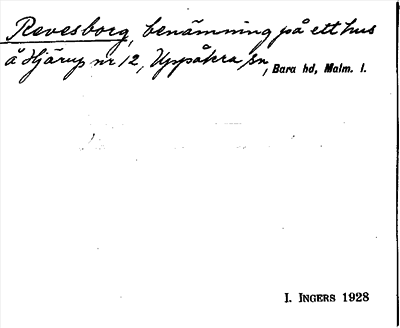 Revesborg, benämning på ett hus
å Hjärup nr 12, Uppåkra sn, Bara hd, Malm. l.
I. INGERS 1928